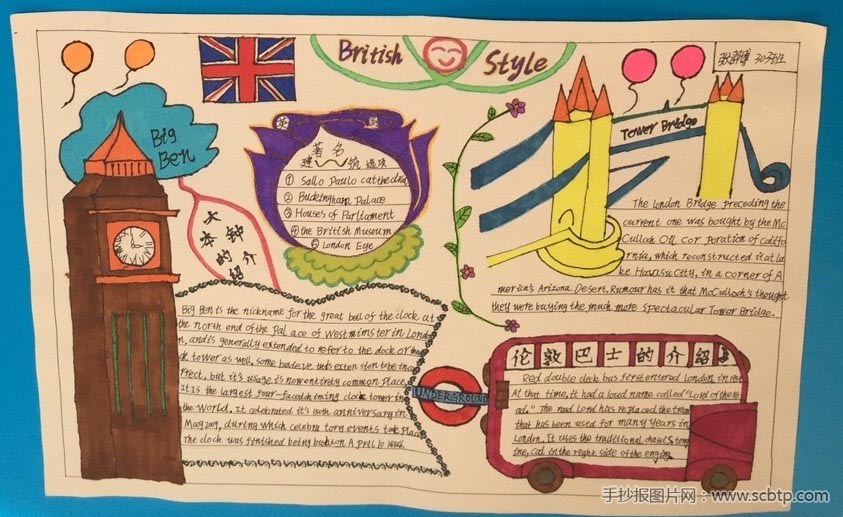 British Style
30班
Big Ben
著名
建筑选项
① Sallo Paulo catthedral
② Buckingham Palace
③ Houses of Parliament
④ the British Museum
⑤ London Eye
大本钟的介绍
Tower Bridge
The London Bridge preceding the
current one was bought by the Mc
Culloch Oil Cor poration of califo
rnia, which reconstructed it at la
ke Havasu City, in a corner of A
merica's Arizona Desert. Rumour has it that McCulloch's thought
they were buying the much more spectacular Tower Bridge.
Big Ben is the nickname for the great bell of the clock at
the north end of the Pal ace of Westminster in Londo
n, and is generally extended to refer to the clock or
ck tower as well, some believe this exten sion to be inco
rrect, but it's usage is now entirely common place.
It is the largest four-faced chiming clock tower in
the World. It celebrated it's 150th anniversary in
May 2009, during which celebra tory events took Place
The clock was finished being on April 10
UNDERGROUND
伦敦巴士的介绍
Red double deck bus first entered London in
At that time, it had a loved name called "Lord of the ro
ad." The road Lord has replaced the tram
that has been used for many years in
London. It uses the traditional chassis
ine, cod in the right side of the engine.
手抄报图片网:www.scbtp.com